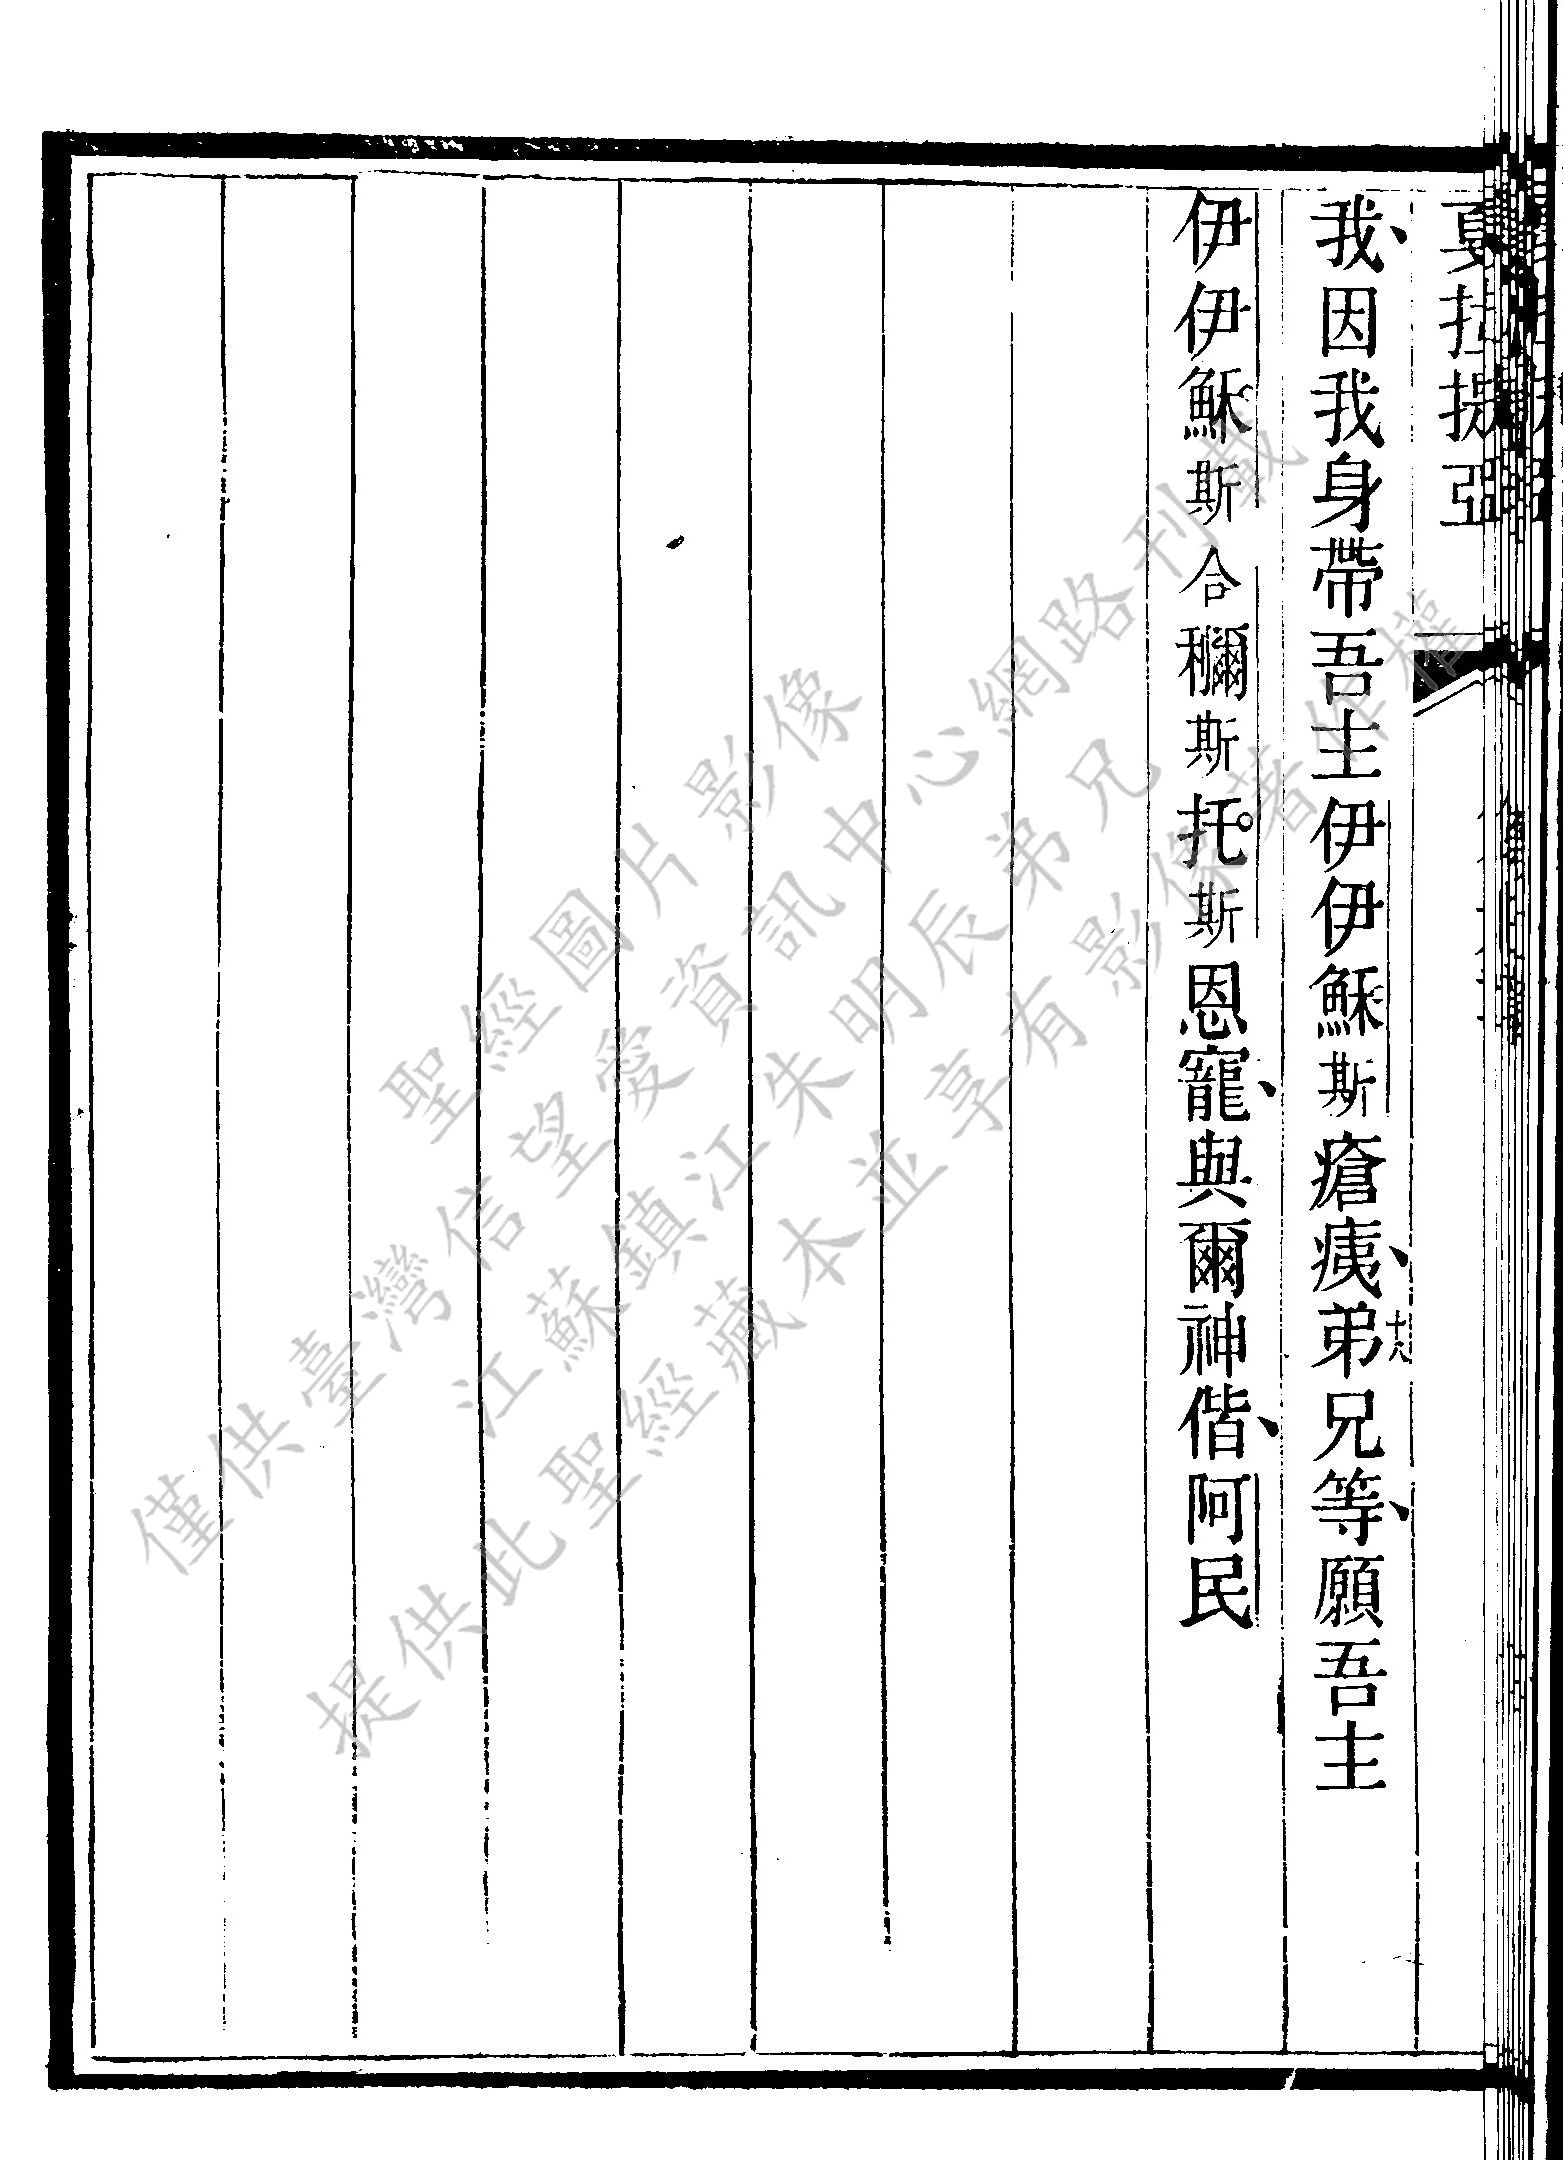 我、因我身帶吾主伊伊穌斯瘡痍、十八弟兄等、願吾主
伊伊穌斯合穪斯托斯恩寵、與爾神偕、阿民
聖經圖片影像
僅供臺灣信望愛資訊中心網路刊載
江蘇鎮江朱明辰弟兄
提供此聖經藏本並享有影像著作權